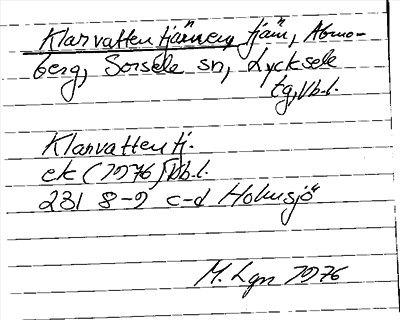 Klarvattentjärnen, tjärn, Abmo-
berg, Sorsele sn, Lycksele
tg, Vb.l.
Klarvattentj.
ek (1976) Vb.l.
231 8-9 c-d Holmsjö
M. Lgn 1976